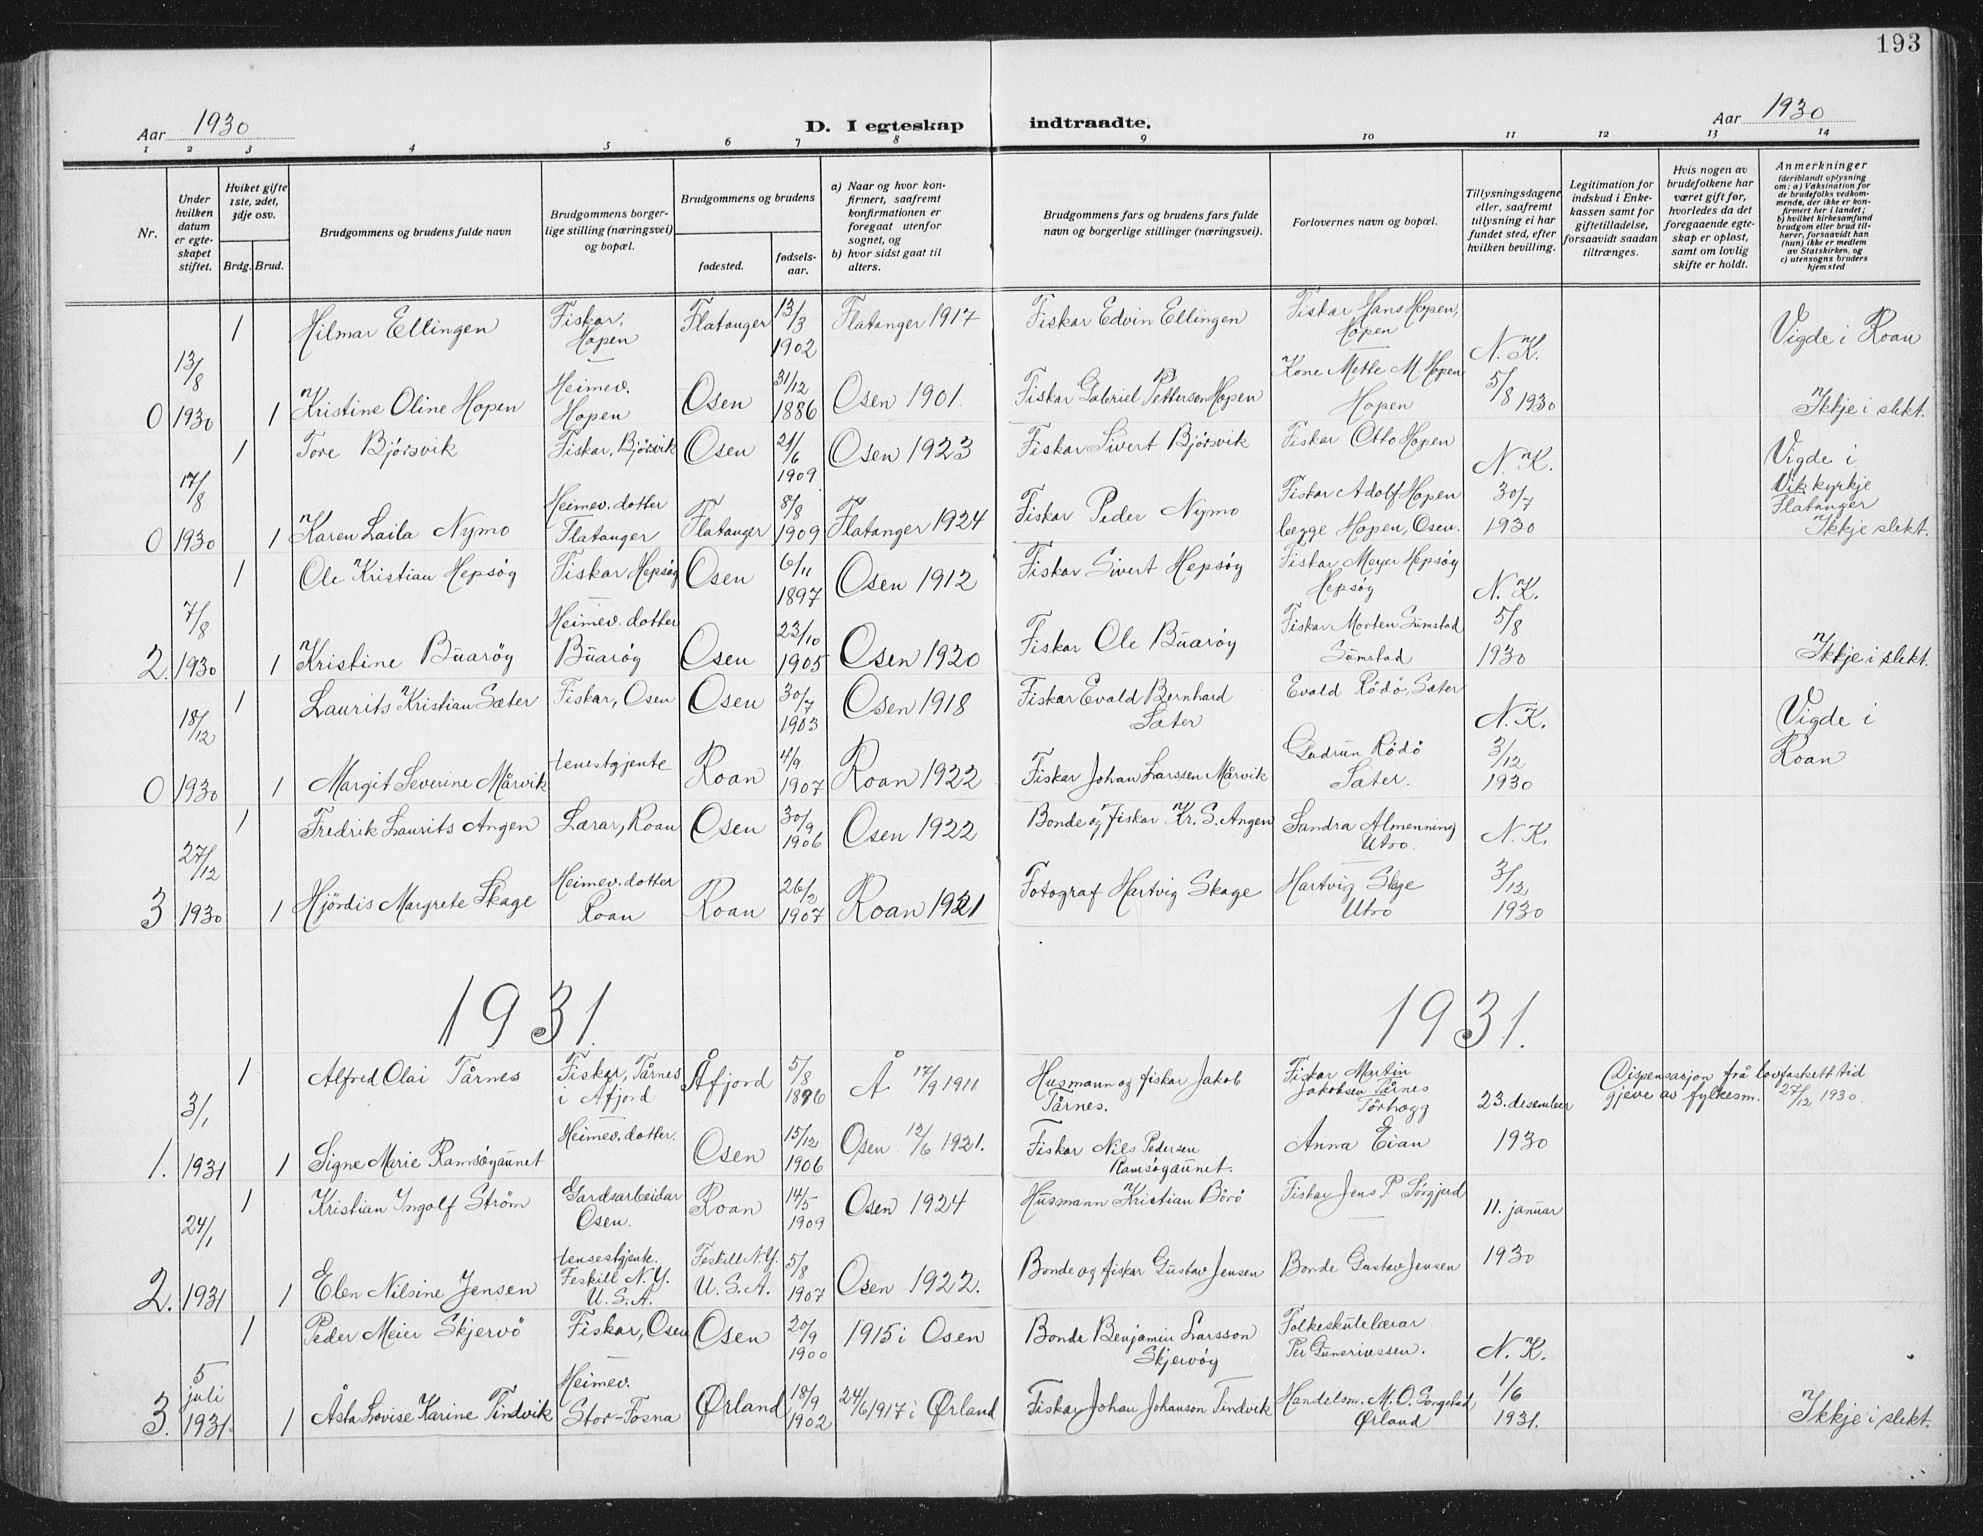 193
Aar 1930
D. I egteskap indtraadte.
Aar 1930
1 2 3 4 5 6 7 8 9 10 11 12 13 14
Nr.
Under hvilken datum er egteskapet stiftet.
Hviket gifte 1ste, 2det, 3dje osv.
Brdg. Brud.
Brudgommens og brudens fulde navn
Brudgommens borgerlige stilling (næringsvei) og bopæl.
Brudgommens og brudens
fødested.
fødselsaar.
a) Naar og hvor konfirmert, saafremt konfirmationen er foregaat utenfor sognet, og
b) hvor sidst gaat til alters.
Brudgommens fars og brudens fars fulde navn og borgerlige stillinger (næringsvei).
Forlovernes navn og bopæl.
Tillysningsdagene eller, saafremt tillysning ei har fundet sted, efter hvilken bevilling.
Legitimation for indskud i Enkekassen samt for giftetilladelse, forsaavidt saadan tiltrænges.
Hvis nogen av brudefolkene har været gift før, hvorledes da det foregaaende egteskap er opløst, samt om lovlig skifte er holdt.
Anmerkninger
(deriblandt oplysning om: a) Vaksination for de brudefolks vedkommende, der ikke er konfirmert her i landet; b) hvilket kirkesamfund brudgom eller brud tilhører, forsaavidt han (hun) ikke er medlem av Statskirken, og c) utensogns bruders hjemsted
1 Hilmar Ellingen Fiskar, Hopen Flatanger 13/3 1902 Flatanger 1917 Fiskar Edvin Ellingen Fiskar Hans Hopen, Hopen Vigde i Roan
0 13/8 1930 1 Kristine Oline Hopen Heimev. Hopen Osen 31/12 1886 Osen 1901. Fiskar Gabriel Petterson Hopen Kone Mette M. Hopen Hopen N.K. 5/8 1930 Ikkje i slekt.
1 Tore Bjørsvik Fiskar, Bjørsvik Osen 21/6 1909 Osen 1923 Fiskar Sivert Bjørsvik Fiskar Otto Hopen N.K. Vigde i Vik kyrkje Flatanger
0 17/8 1930 1 Karen Laila Nymo Heimev. dotter Flatanger Flatanger 8/8 1909 Flatanger 1924 Fiskar Peder Nymo Fiskar Adolf Hopen begge Hopen, Osen. 30/7 1930 Ikkje slekt.
1 Ole Kristian Hepsøg Fiskar Hepsøg Osen 6/11 1897 Osen 1912 Fiskar Sivert Hepsøy Fiskar Meyer Hepsøy Hepsøy N.K.
2. 7/8 1930 1 Kristine Buarøy Heimev. dotter Buarøy Osen 23/10 1905 Osen 1920 Fiskar Ole Buarøy Fiskar Morten Sumstad Sumstad 5/8 1930 Ikkje i slekt.
1 Laurits Kristian Sæter Fiskar, Osen Osen 30/7 1903 Osen 1918 Fiskar Evald Bernhard Sæter Evald Rödö, Sæter N.K. Vigde i Roan
0 18/12 1930 1 Margit Severine Mårvik tenestgjente Roan 4/9 1907 Roan 1922 Fiskar Johan Larssen Mårvik Gudrun Rödö Sæter. 3/12 1930
1 Fredrik Laurits Angen Lærar, Roan Osen 30/9 1906 Osen 1922 Bonde og fiskar Kr. S. Angen Sandra Almenning Utro. N.K.
3 27/12 1930 1 Hjördis Margrete Skage Heimev. dotter Roan Roan 26/2 1907 Roan 1921 Fotograf Hartvig Skage Hartvig Skage Utro 3/12 1930
1931. 1931.
1 Alfred Olai Tårnes Fiskar, Tårnes i Åfjord Åfjord 5/8 1896 Å 17/9 1911 Husmann og fiskar Jakob Tårnes. Fiskar Martin Jakobsen Tårnes Tørhogg 23. desember Dispensasjon frå lovfastsett tid gjeve av fylkesm. 27/12 1930.
1. 3/1 1931 1 Signe Marie Ramsøgaunet Heimev. dotter. Osen 15/12 1906 Osen 12/6 1921. Fiskar Nils Pedersen Ramsøgaunet. Anna Eian 1930
1 Kristian Ingolf Strøm Gardsarbeidar Osen. Roan 14/5 1909 Osen 1924 Husmann Kristian Börö Fiskar Jens P. Sörgjerd 11. januar
2. 24/1 1931 1 Elen Nilsine Jensen tenestgjente. Feskill N.Y. U.S.A. Feskill N.Y. U.S.A. 5/8 1907 Osen 1922. Bonde og fiskar Gustav Jensen Bonde Gustav Jensen 1930
1 Peder Meier Skjervö Fiskar, Osen Osen 20/9 1900 1915 i Osen Bonde Benjamin Larsson Skjervøy Folkeskulelærar Per N.K.
3. 5 juli 1931 1 Åsta Lovise Karine Tindvik Heimev. Stor-Fosna Ørland 18/9 1902 24/6 1917 i Ørland Fiskar Johan Johanson Tindvik Handelsm. M.O. Ørland 1/6 1931. Ikkje i slekt.